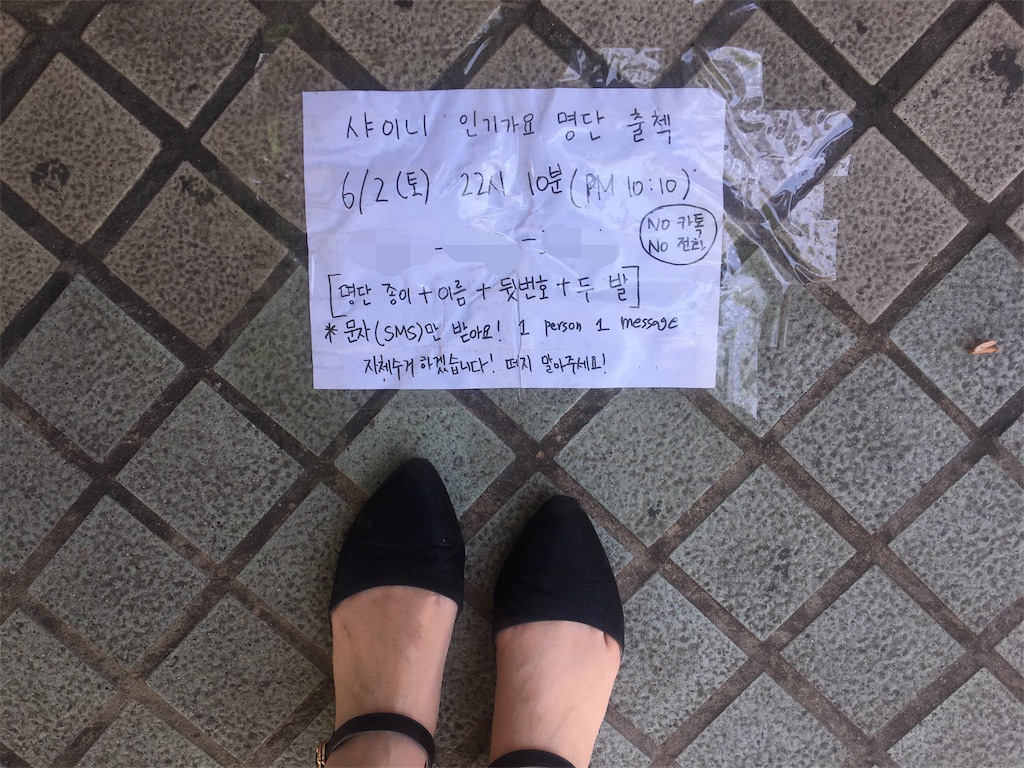 샤이니 인기가요 명단 출첵
6/2(토) 22시 10분(PM 10:10)
NO 카톡
NO 전화
- -
[명단 종이+이름+뒷번호+두 발]
* 문자(SMS)만 받아요! 1 person 1 message
자체수거 하겠습니다! 떼지 말아주세요!